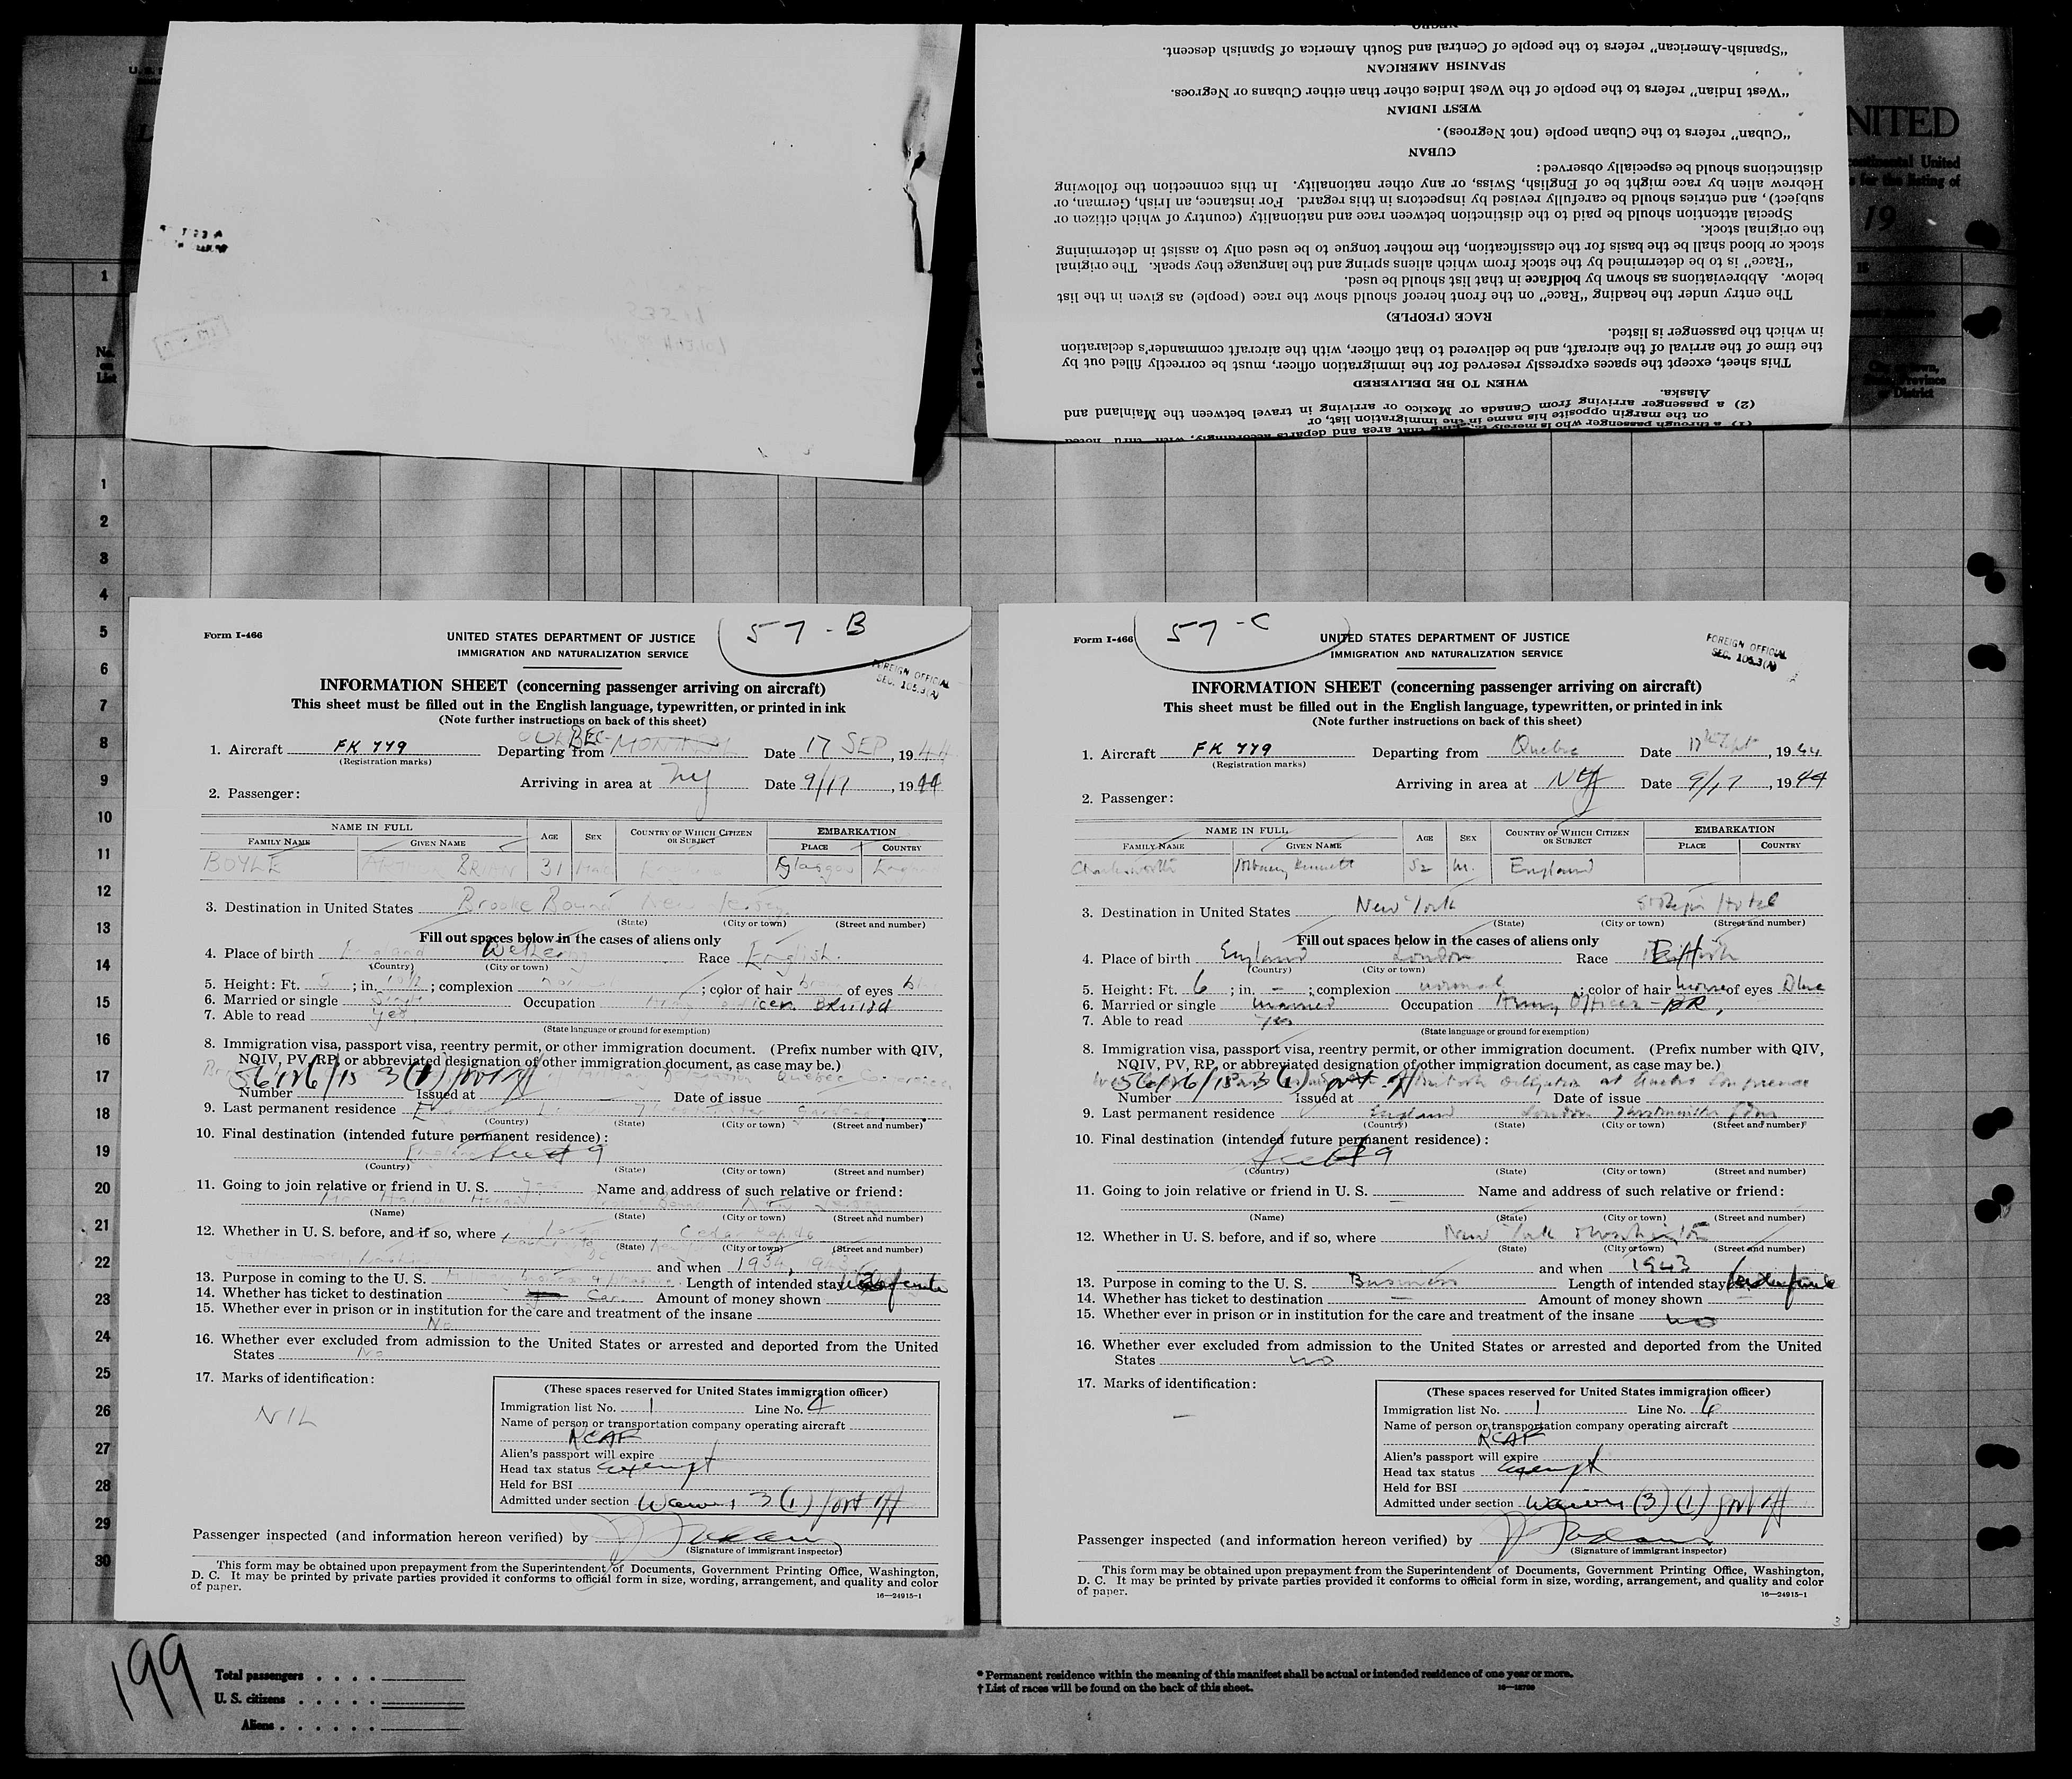 NEGRO
"Spanish-American" refers to the people of Central and South America of Spanish descent.
SPANISH AMERICAN
"West Indian" refers to the people of the West Indies other than either Cubans or Negroes.
WEST INDIAN
"Cuban" refers to the Cuban people (not Negroes).
CUBAN
distinctions should be especially observed:
Hebrew alien by race might be of English, Swiss, or any other nationality. In this connection the following
subject), and entries should be carefully revised by inspectors in this regard. For instance, an Irish, German, or
Special attention should be paid to the distinction between race and nationality (country of which citizen or
the original stock.
stock or blood shall be the basis for the classification, the mother tongue to be used only to assist in determining
"Race" is to be determined by the stock from which aliens spring and the language they speak. The original
below. Abbreviations as shown by boldface in that list should be used.
The entry under the heading "Race" on the front hereof should show the race (people) as given in the list
RACE (PEOPLE)
in which the passenger is listed.
the time of the arrival of the aircraft, and be delivered to that officer, with the aircraft commander's declaration
This sheet, except the spaces expressly reserved for the immigration officer, must be correctly filled out by
WHEN TO BE DELIVERED
Alaska.
(2) a passenger arriving from Canada or Mexico or arriving in travel between the Mainland and
on the margin opposite his name in the immigration list, or
(1) a through passenger who is merely that area and departs accordingly, with thru noted
NITED
continental United
for the listing of
19
No.
on
List
1
1
2
3
4
5
6
7
8
9
10
11
12
13
14
15
16
17
18
19
20
21
22
23
24
25
26
27
28
29
30
57-B
Form I-466
UNITED STATES DEPARTMENT OF JUSTICE
IMMIGRATION AND NATURALIZATION SERVICE
FOREIGN OFFICIAL
SEC. 105.3(A)
INFORMATION SHEET (concerning passenger arriving on aircraft)
This sheet must be filled out in the English language, typewritten, or printed in ink
(Note further instructions on back of this sheet)
QUEBEC
1. Aircraft FK 779 Departing from MONTREAL Date 17 SEP, 1944
(Registration marks)
Arriving in area at NY Date 9/17, 1944
2. Passenger:
NAME IN FULL AGE SEX COUNTRY OF WHICH CITIZEN OR SUBJECT EMBARKATION
FAMILY NAME GIVEN NAME PLACE COUNTRY
BOYLE BRIAN 31 Glasgow
3. Destination in United States Brooke Bound New Jersey
(State) (City or town) (Street and number)
Fill out spaces below in the cases of aliens only
4. Place of birth England Race English
(Country) (City or town)
5. Height: Ft. 5; in. 10½; complexion ; color of hair of eyes
6. Married or single Single Occupation Officer British
7. Able to read yes
(State language or ground for exemption)
8. Immigration visa, passport visa, reentry permit, or other immigration document. (Prefix number with QIV,
NQIV, PV, RP, or abbreviated designation of other immigration document, as case may be.)
56126/15 3(1) Quebec Conference
Number Issued at Date of issue
9. Last permanent residence England Gardens
(Country) (State) (City or town) (Street and number)
10. Final destination (intended future permanent residence):
England See # 9
(Country) (State) (City or town) (Street and number)
11. Going to join relative or friend in U. S. Yes Name and address of such relative or friend:
(Name) (State) (City or town) (Street and number)
12. Whether in U. S. before, and if so, where Cedar Rapids
(State) (City or town) (Street and number)
and when 1934,
13. Purpose in coming to the U. S. Length of intended stay indefinite
14. Whether has ticket to destination Car. Amount of money shown
15. Whether ever in prison or in institution for the care and treatment of the insane
No
16. Whether ever excluded from admission to the United States or arrested and deported from the United
States No
17. Marks of identification:
NIL
(These spaces reserved for United States immigration officer)
Immigration list No. 1 Line No. 4
Name of person or transportation company operating aircraft
RCAF
Alien's passport will expire
Head tax status exempt
Held for BSI
Admitted under section Waiver 3 (1)
Passenger inspected (and information hereon verified) by
(Signature of immigrant inspector)
This form may be obtained upon prepayment from the Superintendent of Documents, Government Printing Office, Washington,
D. C. It may be printed by private parties provided it conforms to official form in size, wording, arrangement, and quality and color
of paper.
16—24915-1
57-C
Form I-466
UNITED STATES DEPARTMENT OF JUSTICE
IMMIGRATION AND NATURALIZATION SERVICE
FOREIGN OFFICIAL
SEC. 105.3(A)
INFORMATION SHEET (concerning passenger arriving on aircraft)
This sheet must be filled out in the English language, typewritten, or printed in ink
(Note further instructions on back of this sheet)
1. Aircraft FK 779 Departing from Quebec Date 17th Sept, 1944
(Registration marks)
Arriving in area at NY Date 9/17, 1944
2. Passenger:
NAME IN FULL AGE SEX COUNTRY OF WHICH CITIZEN OR SUBJECT EMBARKATION
FAMILY NAME GIVEN NAME PLACE COUNTRY
Charlesworth Albany Kennett 52 M. England
3. Destination in United States New York St Regis Hotel
(State) (City or town) (Street and number)
Fill out spaces below in the cases of aliens only
4. Place of birth England London Race
(Country) (City or town)
5. Height: Ft. 6; in. -; complexion normal; color of hair of eyes Blue
6. Married or single married Occupation Army Officer - BR,
7. Able to read Yes
(State language or ground for exemption)
8. Immigration visa, passport visa, reentry permit, or other immigration document. (Prefix number with QIV,
NQIV, PV, RP, or abbreviated designation of other immigration document, as case may be.)
56126/15 3(1) British Delegation at Quebec Conference
Number Issued at Date of issue
9. Last permanent residence England London Westminster Gdns
(Country) (State) (City or town) (Street and number)
10. Final destination (intended future permanent residence):
See # 9
(Country) (State) (City or town) (Street and number)
11. Going to join relative or friend in U. S. — Name and address of such relative or friend:
(Name) (State) (City or town) (Street and number)
12. Whether in U. S. before, and if so, where New York & Washington
(State) (City or town) (Street and number)
and when 1943
13. Purpose in coming to the U. S. Business Length of intended stay indefinite
14. Whether has ticket to destination — Amount of money shown —
15. Whether ever in prison or in institution for the care and treatment of the insane no
16. Whether ever excluded from admission to the United States or arrested and deported from the United
States no
17. Marks of identification:
—
(These spaces reserved for United States immigration officer)
Immigration list No. 1 Line No. 6
Name of person or transportation company operating aircraft
RCAF
Alien's passport will expire
Head tax status exempt
Held for BSI
Admitted under section Waiver (3) (1)
Passenger inspected (and information hereon verified) by
(Signature of immigrant inspector)
This form may be obtained upon prepayment from the Superintendent of Documents, Government Printing Office, Washington,
D. C. It may be printed by private parties provided it conforms to official form in size, wording, arrangement, and quality and color
of paper.
16—24915-1
199
Total passengers
U. S. citizens
Aliens
* Permanent residence within the meaning of this manifest shall be actual or intended residence of one year or more.
† List of races will be found on the back of this sheet.